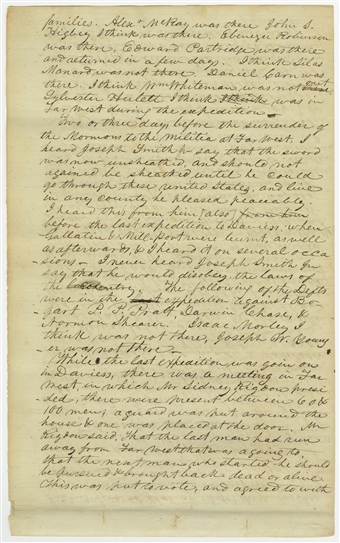 families. Alexr McKay was there John S.
Higbey I think was there; Ebenezer Robinson
was there; Edward Partridge was there
and returned in a few days. I think Silas
Manard was not there Daniel Carn was
there. I think Wm Whiteman, was not
Sylvester Hulett I think I think was in
Far West during the expedition
Two or three days before the surrender of
the Mormons to the militia at Far West. I
heard Joseph Smith Jr say that the sword
was now unsheathed, and should not
again be sheathed until he could
go through these united States, and live
in any county he pleased peaceably.
I heard this from him [also] from him
before the last expedition to Daviess, when
Gallatin & Mill-port were burnt, as well
as afterwards, & I heard it on several occa
sions - I never heard Joseph Smith Jr
say that he would disobey the laws of
the country. The following of the Defts
were in the expedition against Bo-
gart P. P. Pratt, Darwin Chase, &
Norman Shearer. Isaac Morley I
think was not there, Joseph W. Young
er was not there -
While the last expedition was goin on
in Daviess, there was a meeting in Far
West, in which Mr Sidney Rigdon presi
ded, there were present between 60 &
100 men; a guard was put around the
house & one was placed at the door. Mr
Rigdon said, that the last man had run
away from Far West that was a going to,
that the next man who started he should
be pursued & brought back dead or alive
This was put to vote, and agreed to with